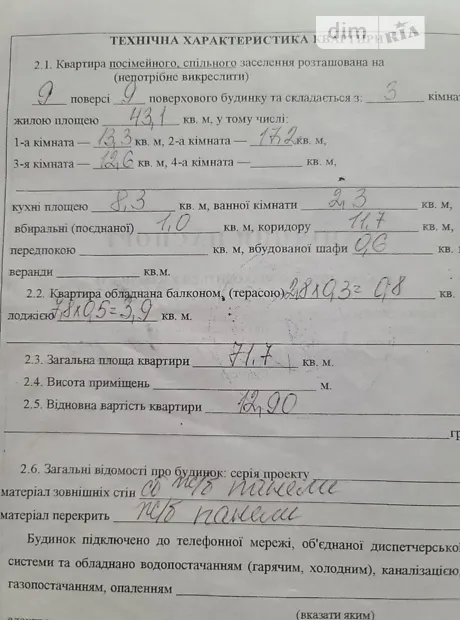 dim RIA
ТЕХНІЧНА ХАРАКТЕРИСТИКА КВАРТИРИ
2.1. Квартира посімейного, спільного заселення розташована на
(непотрібне викреслити)
9 поверсі 9 поверхового будинку та складається з: 3 кімнат
жилою площею 43,1 кв. м, у тому числі:
1-а кімната — 13,3 кв. м, 2-а кімната — 17,2 кв. м,
3-я кімната — 12,6 кв. м, 4-а кімната — кв. м,
кухні площею 8,3 кв. м, ванної кімнати 2,3 кв. м,
вбиральні (поєднаної) 1,0 кв. м, коридору 11,7 кв. м,
передпокою кв. м, вбудованої шафи 0,6 кв.
веранди кв.м.
2.2. Квартира обладнана балконом, (терасою) 2,8х0,3= 0,8 кв.
лоджією 7,8х0,5=3,9 кв. м.
2.3. Загальна площа квартири 71,7 кв. м.
2.4. Висота приміщень м.
2.5. Відновна вартість квартири 12,90
гр
2.6. Загальні відомості про будинок: серія проекту
матеріал зовнішніх стін сб ж/б панели
матеріал перекрить ж/б панели
Будинок підключено до телефонної мережі, об'єднаної диспетчерської
системи та обладнано водопостачанням (гарячим, холодним), каналізацією,
газопостачанням, опаленням
(вказати яким)